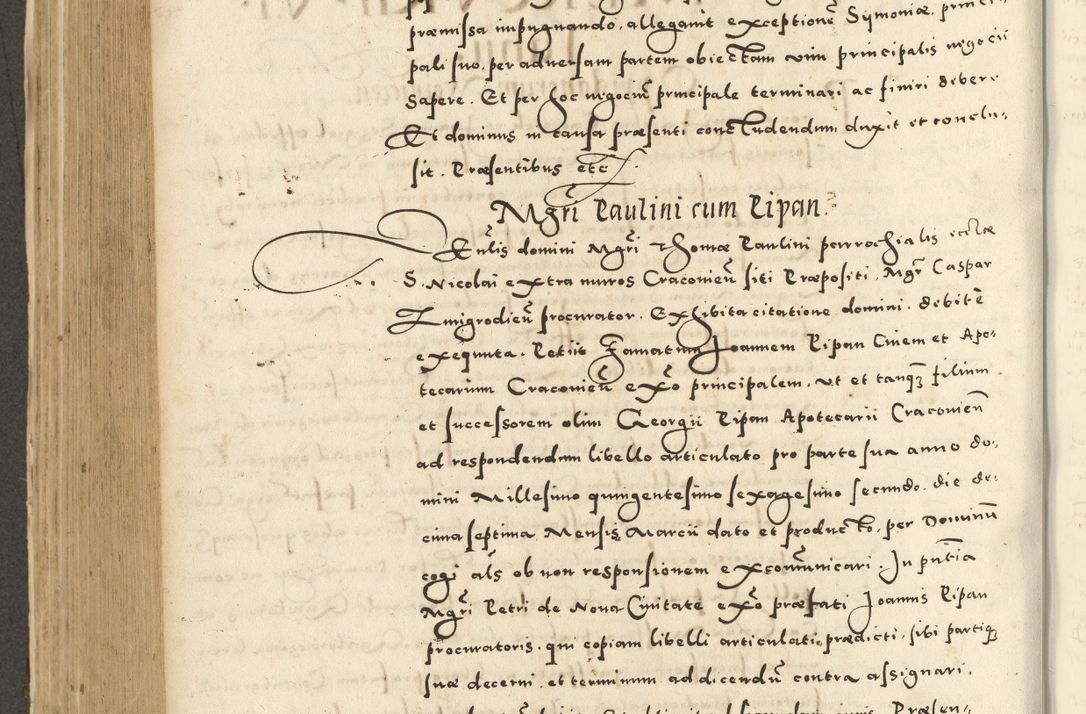 præmissa impugnando, allegant exceptionē Symoniæ, princi-
pali suo, per adversam partem obiectam vim principalis negocii
sapere. Et per hoc negociū principale terminari ac finiri debere
Et dominus in causa præsenti concludendum duxit et conclu-
sit. Præsentibus etc.
Mgri Paulini cum Pipan.
Eūlis domini Mgri Thomæ Paulini parrochialis ecclæ
S. Nicolai extra muros Cracovieñ siti Præpositi. Mgr Caspar
Zmigrodieñ procurator. Exhibita citatione domini. debitè
exequuta. Petiit Famatum Joannem Pipan Civem et Apo-
tecarium Cracovieñ exº principalem, ut et tanq̃ filium
et successorem olim Georgii Pipan Apotecarii Cracovieñ
ad respondendum libello articulato pro parte sua anno do-
mini Millesimo quingentesimo sexagesimo secundo. die de-
cima septima Mensis Marcii dato et producto, per Dominū
cogi als ob non responsionem excomūnicari. In pñtia
Mgri Petri de Nova Civitate exº præfati Joannis Pipan
procuratoris. qui copiam libelli articulati prædicti. sibi partiq
suæ decerni. et terminum ad dicendū contra assignari.
Præsen-